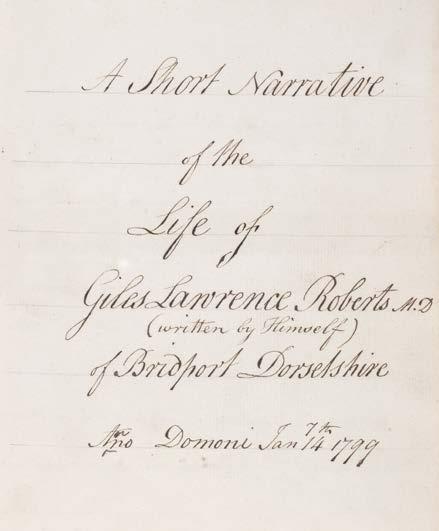 A Short Narrative
of the
Life of
Giles Lawrence Roberts M.D
(written by Himself)
of Bridport Dorsetshire
Domoni Jan 14 1799